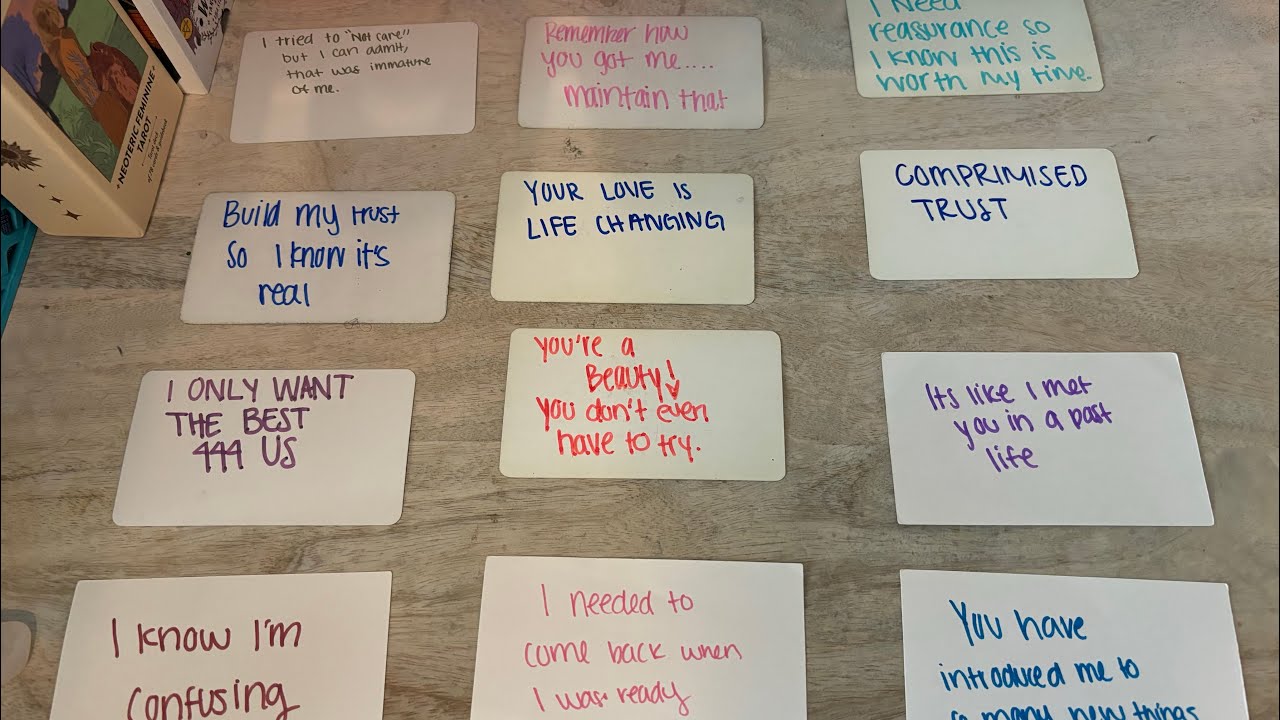 I tried to "Not care"
but I can admit,
that was immature
of me.
Remember how
you got me....
maintain that
I Need
reasurance so
I know this is
worth my time.
Build my trust
So I know it's
real
YOUR LOVE IS
LIFE CHANGING
COMPRIMISED
TRUST
I ONLY WANT
THE BEST
444 US
you're a
Beauty!
you don't even
have to try.
Its like I met
you in a past
life
I know I'm
confusing
I needed to
come back when
I was ready
You have
introduced me to
so many new things
NEOTERIC FEMININE
TAROT